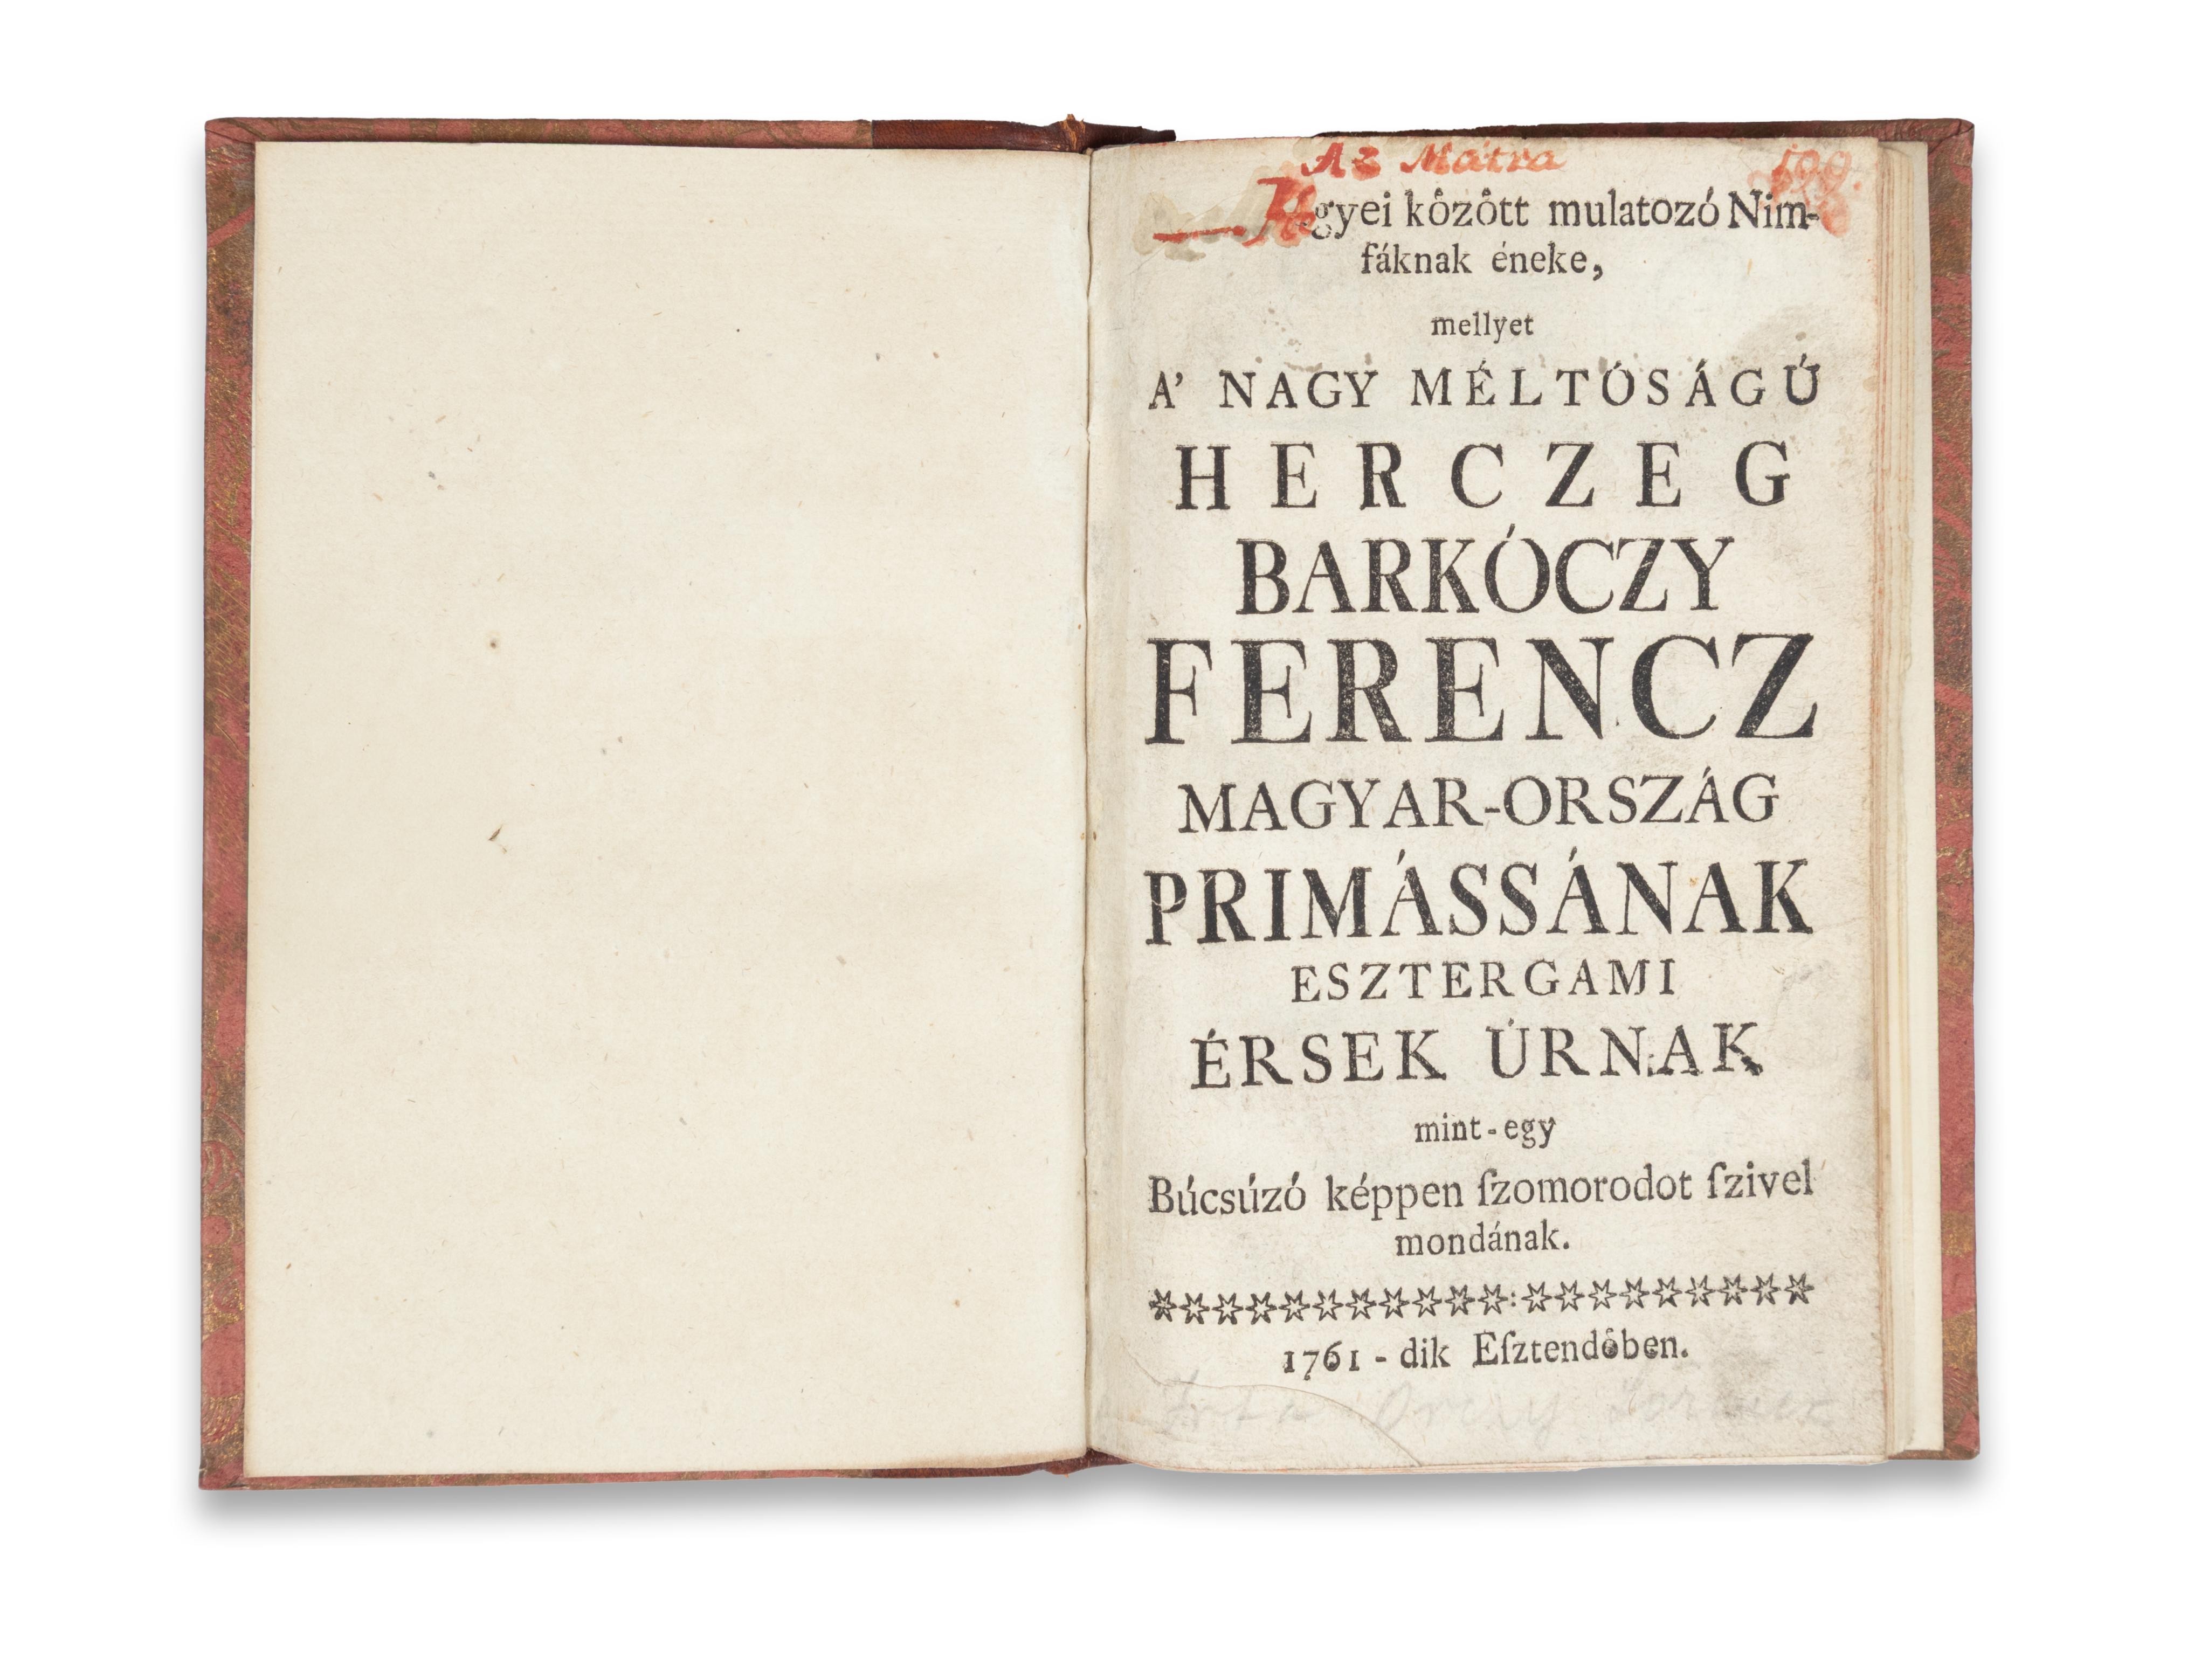 Az Mátra 199.
Hegyei kỏzỏtt mulatozó Nim-
fáknak éneke,
mellyet
A' NAGY MÉLTÓSÁGÚ
HERCZEG
BARKÓCZY
FERENCZ
MAGYAR-ORSZÁG
PRIMÁSSÁNAK
ESZTERGAMI
ÉRSEK ÚRNAK
mint-egy
Búcsúzó képpen ſzomorodot ſzivel
mondának.
1761-dik Eſztendỏben.
Irta Orczy Lorincz